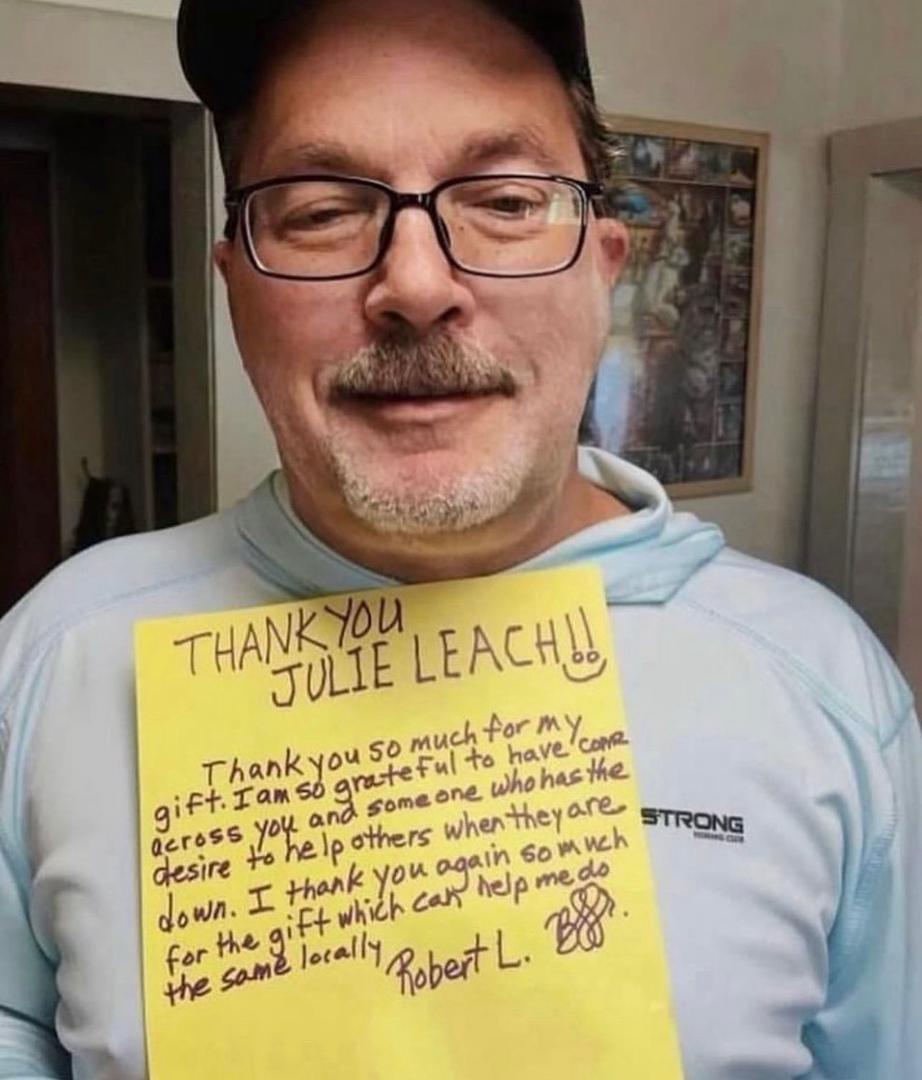 THANK YOU
JULIE LEACH!!
Thank you so much for my
gift. I am so grateful to have come
across you and someone who has the
desire to help others when they are
down. I thank you again so much
for the gift which can help me do
the same locally
Robert L.
STRONG